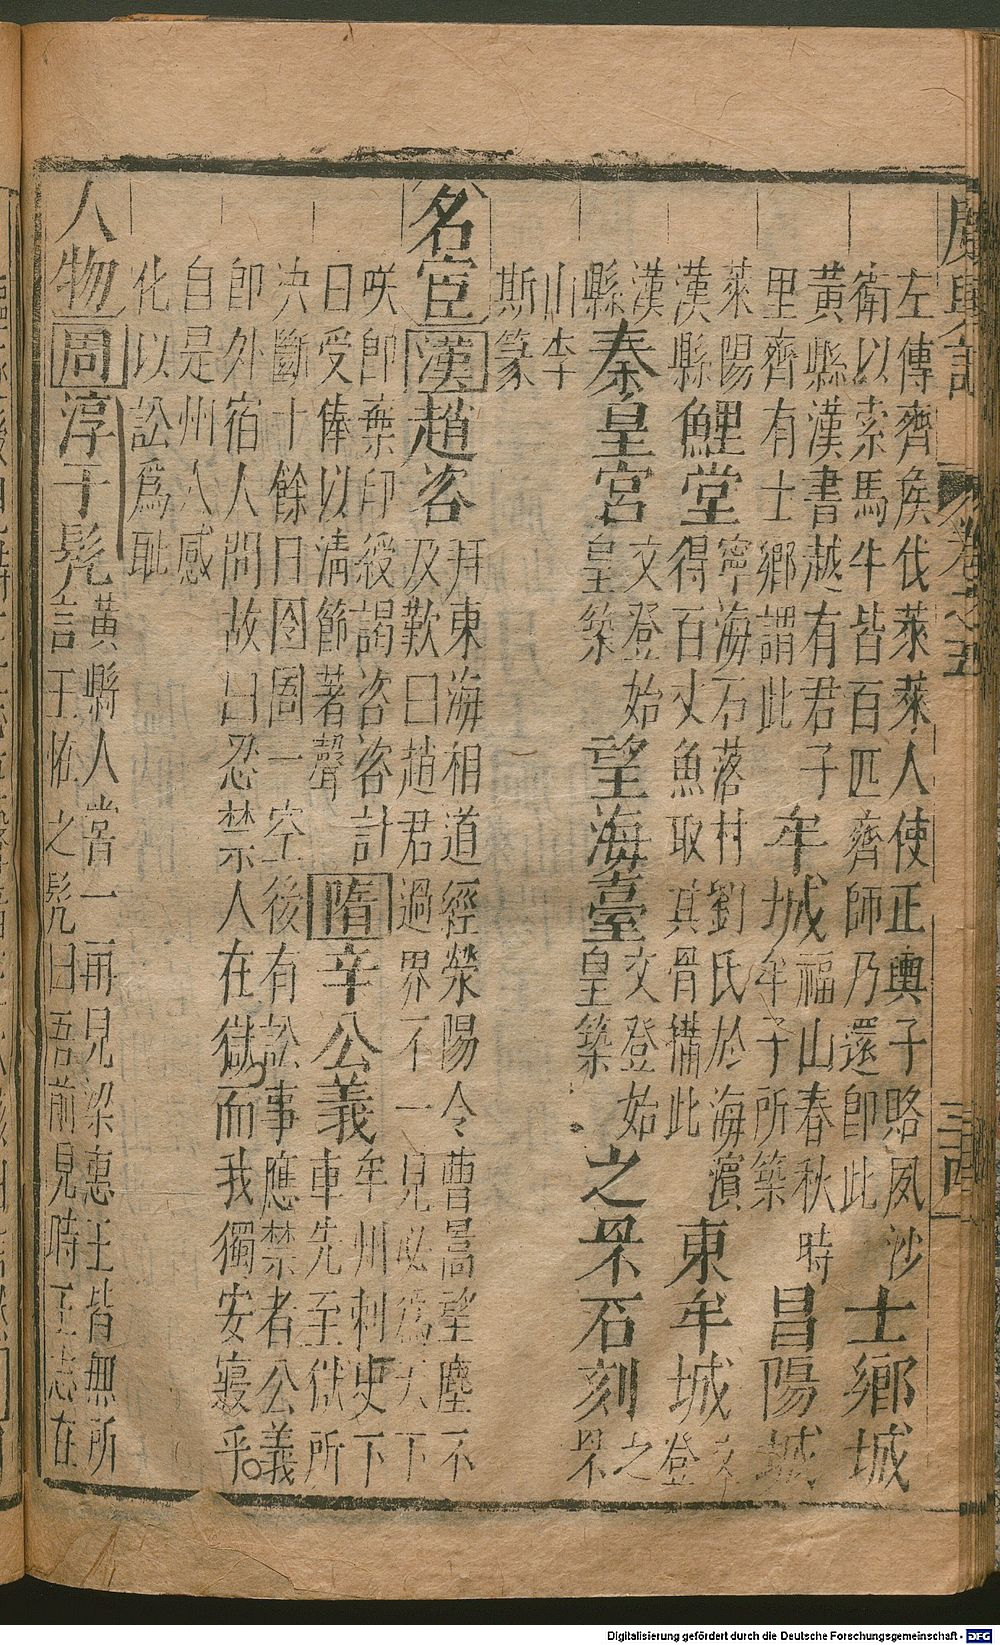 廣輿記 卷之五 三十四
左傳齊侯伐萊萊人使正輿子賂夙沙
衛以索馬牛皆百匹齊師乃還即此
士鄉城
黃縣漢書越有君子
里齊有士鄉謂此
牟城
福山春秋時
牟子所築
昌陽城
萊陽
漢縣
鯉堂
寧海石落村劉氏於海濱
得百丈魚取其骨搆此
東牟城
文
登
漢
縣
秦皇宮
文登始
皇築
望海臺
文登始
皇築
之罘石刻
之
罘
山李
斯篆
名宦 漢 趙咨
拜東海相道經滎陽令曹暠望塵不
及歎曰趙君過界不一見必爲天下
咲即棄印綬謁咨咨計
日受俸以清節著聲
隋 辛公義
牟州刺史下
車先至獄所
決斷十餘日囹圄一空後有訟事應禁者公義
即外宿人問故曰忍禁人在獄而我獨安寢乎
自是州人感
化以訟爲恥
人物 周 淳于髡
黃縣人嘗一再見梁惠王皆無所
言王恠之髡曰吾前見時王志在
Digitalisierung gefördert durch die Deutsche Forschungsgemeinschaft - DFG